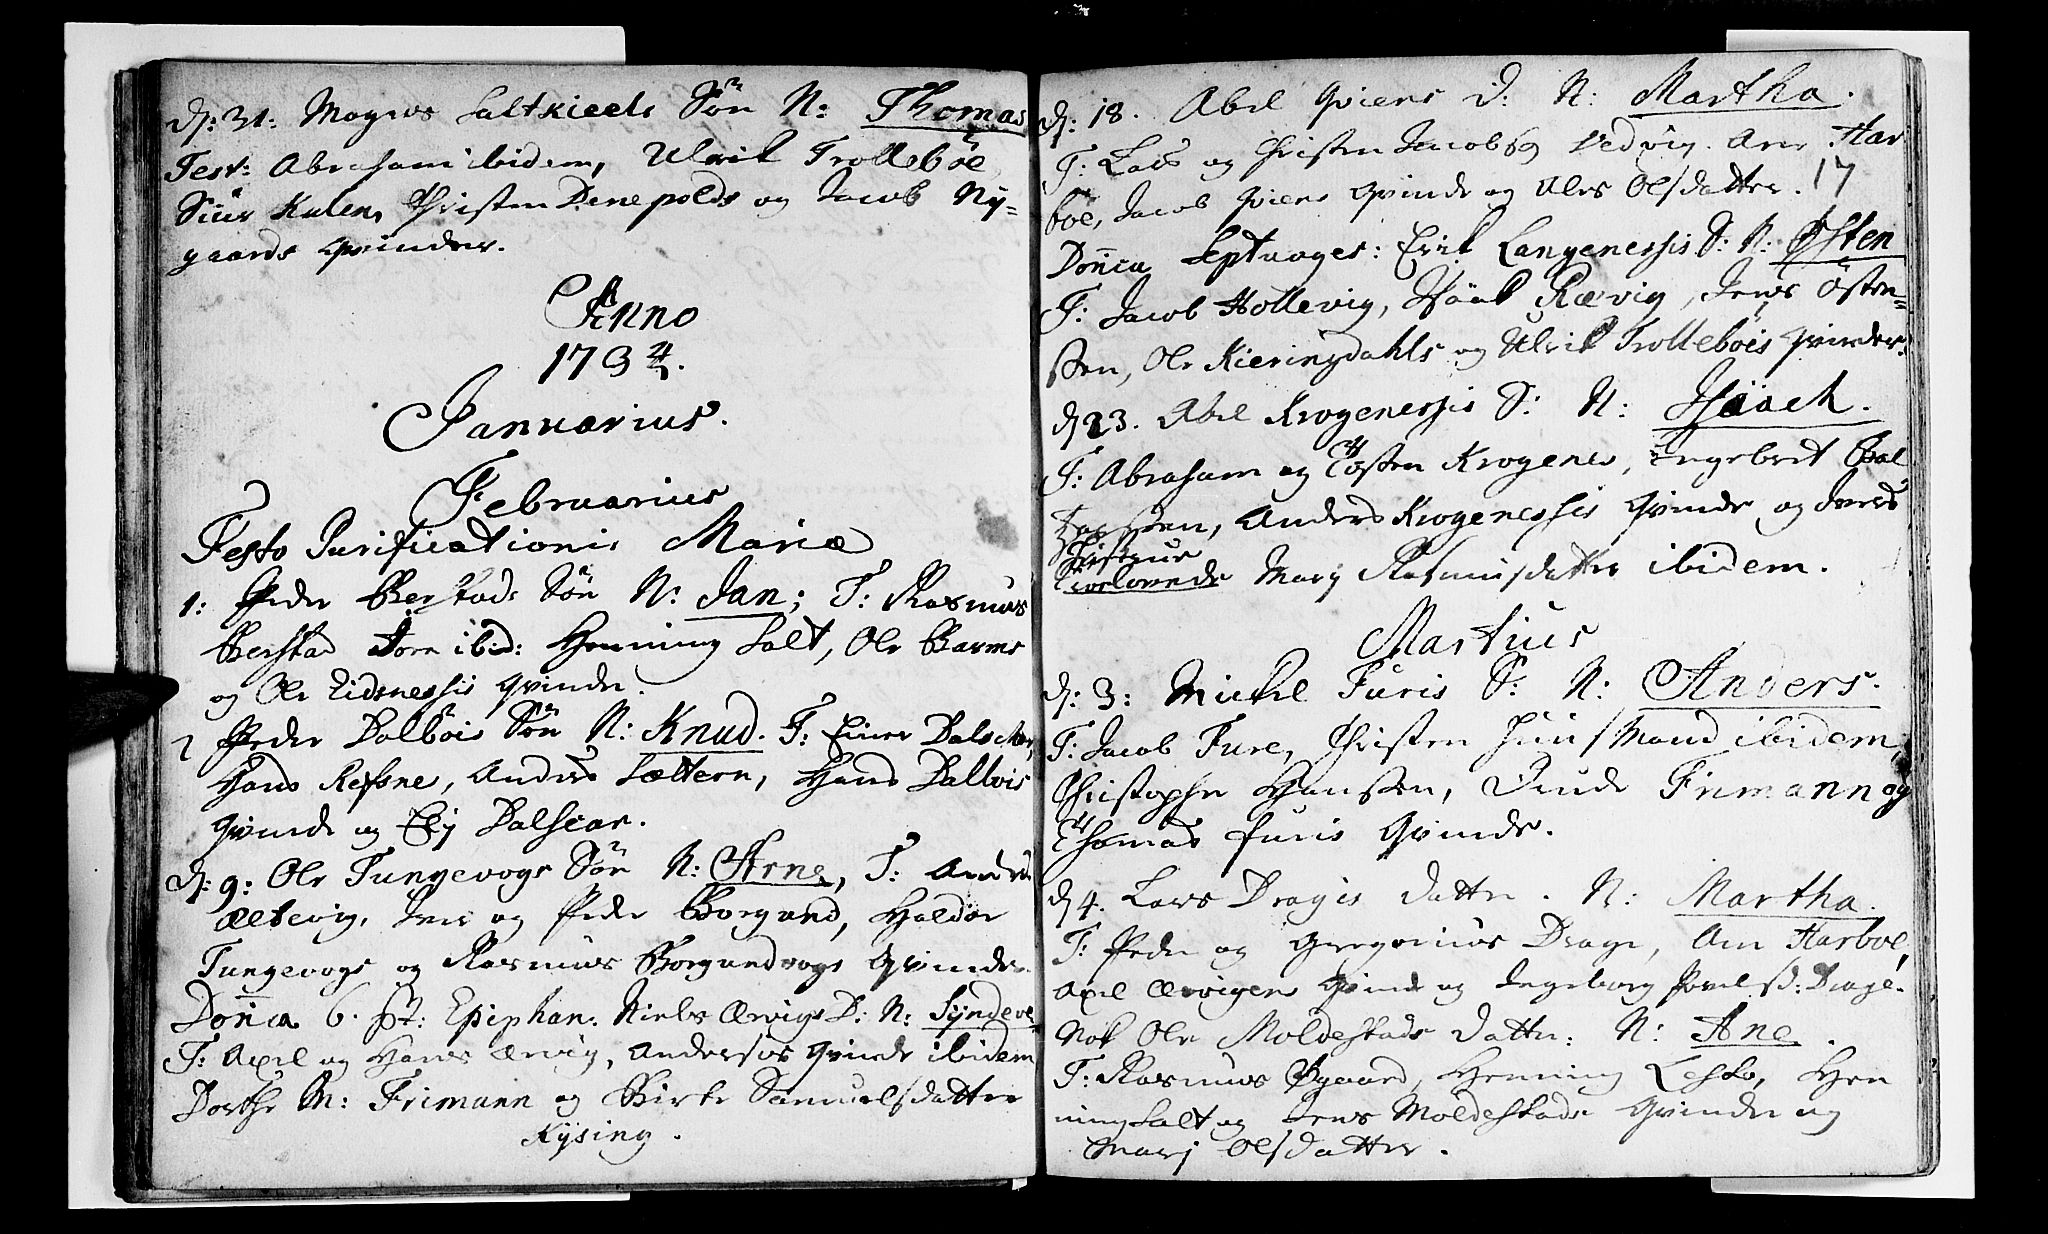 d: 31: Magnus Saltkieels Sön N: Thomas
Test: Abraham ibidem, Ulrik Trolleböe
Siur Kulen, Christen Denepolds og Jacob Ny=
gaards qvinder.
Anno
1734.
Januarius.
Februarius
Festo Purificationis Mariæ
1: Peder Berstads Sön N: Jan; T: Rasmus
Berstad Jorn ibid: Henning Salt, Ole Barms
og Ole Eidsnessis qvinde.
2 Peder Dalböis Sön N: Knud. T: Einer Dalschar,
Hans Refsne, Anders Sættern, Hans Dalbois
qvinde og Elj Dalscar.
d: 9: Ole Tungevogs Sön N: Arne, T: Anders
Ælsevig, Iver og Peder Borgund, Haldor
Tungevogs og Rasmus Borgundvogs qvinder.
Dom̄ca 6. pt: Epiphan. Niels Ervigs D: N: Syndeve
T: Axel og Hans Ervig, Andersis qvinde ibidem
Dorthe M: Frimann og Birte Samuelsdatter
Kysing.
d: 18. Abel qviens D: N: Martha.
T: Lars og Christen Jacobss. Vedvig. Ane Har
boe, Jacob qviens qvinde og Ales Olsdatter. 17
Dom̄ca Septuages: Erik Langenessis S: N: Østen
T: Jacob Hollevig, Isaak Rævig, Jens Östen=
ssen, Ole Kieringdahls og Ulrik Trollebois qvinder.
d 23. Abel Krogenessis S: N: Isaach.
T: Abraham og Tosten Krogenes, Engebret Bal
ssen, Anders Krogenessis qvinde og Iverss
Trolovede Mary Rasmusdatter ibidem.
Martius
d: 3: Mickel Furis S: N: Anders.
T: Jacob Fure, Christen Huusmand ibidem,
Christopher Hanssen, Frimann og
Thomas furis qvinde.
d 4. Lars Dragis datter. N: Martha.
T: Peder og Gregorius Drage, Ane Harboe,
Axel Ervigens qvinde og Ingeborg Povels D: Drage.
Nok Ole Moldestads datter: N: Ane.
T: Rasmus Øygaard, Henning Leste, Hen
ning Salt og Jens Moldestads qvinder og
Marj Olsdatter.